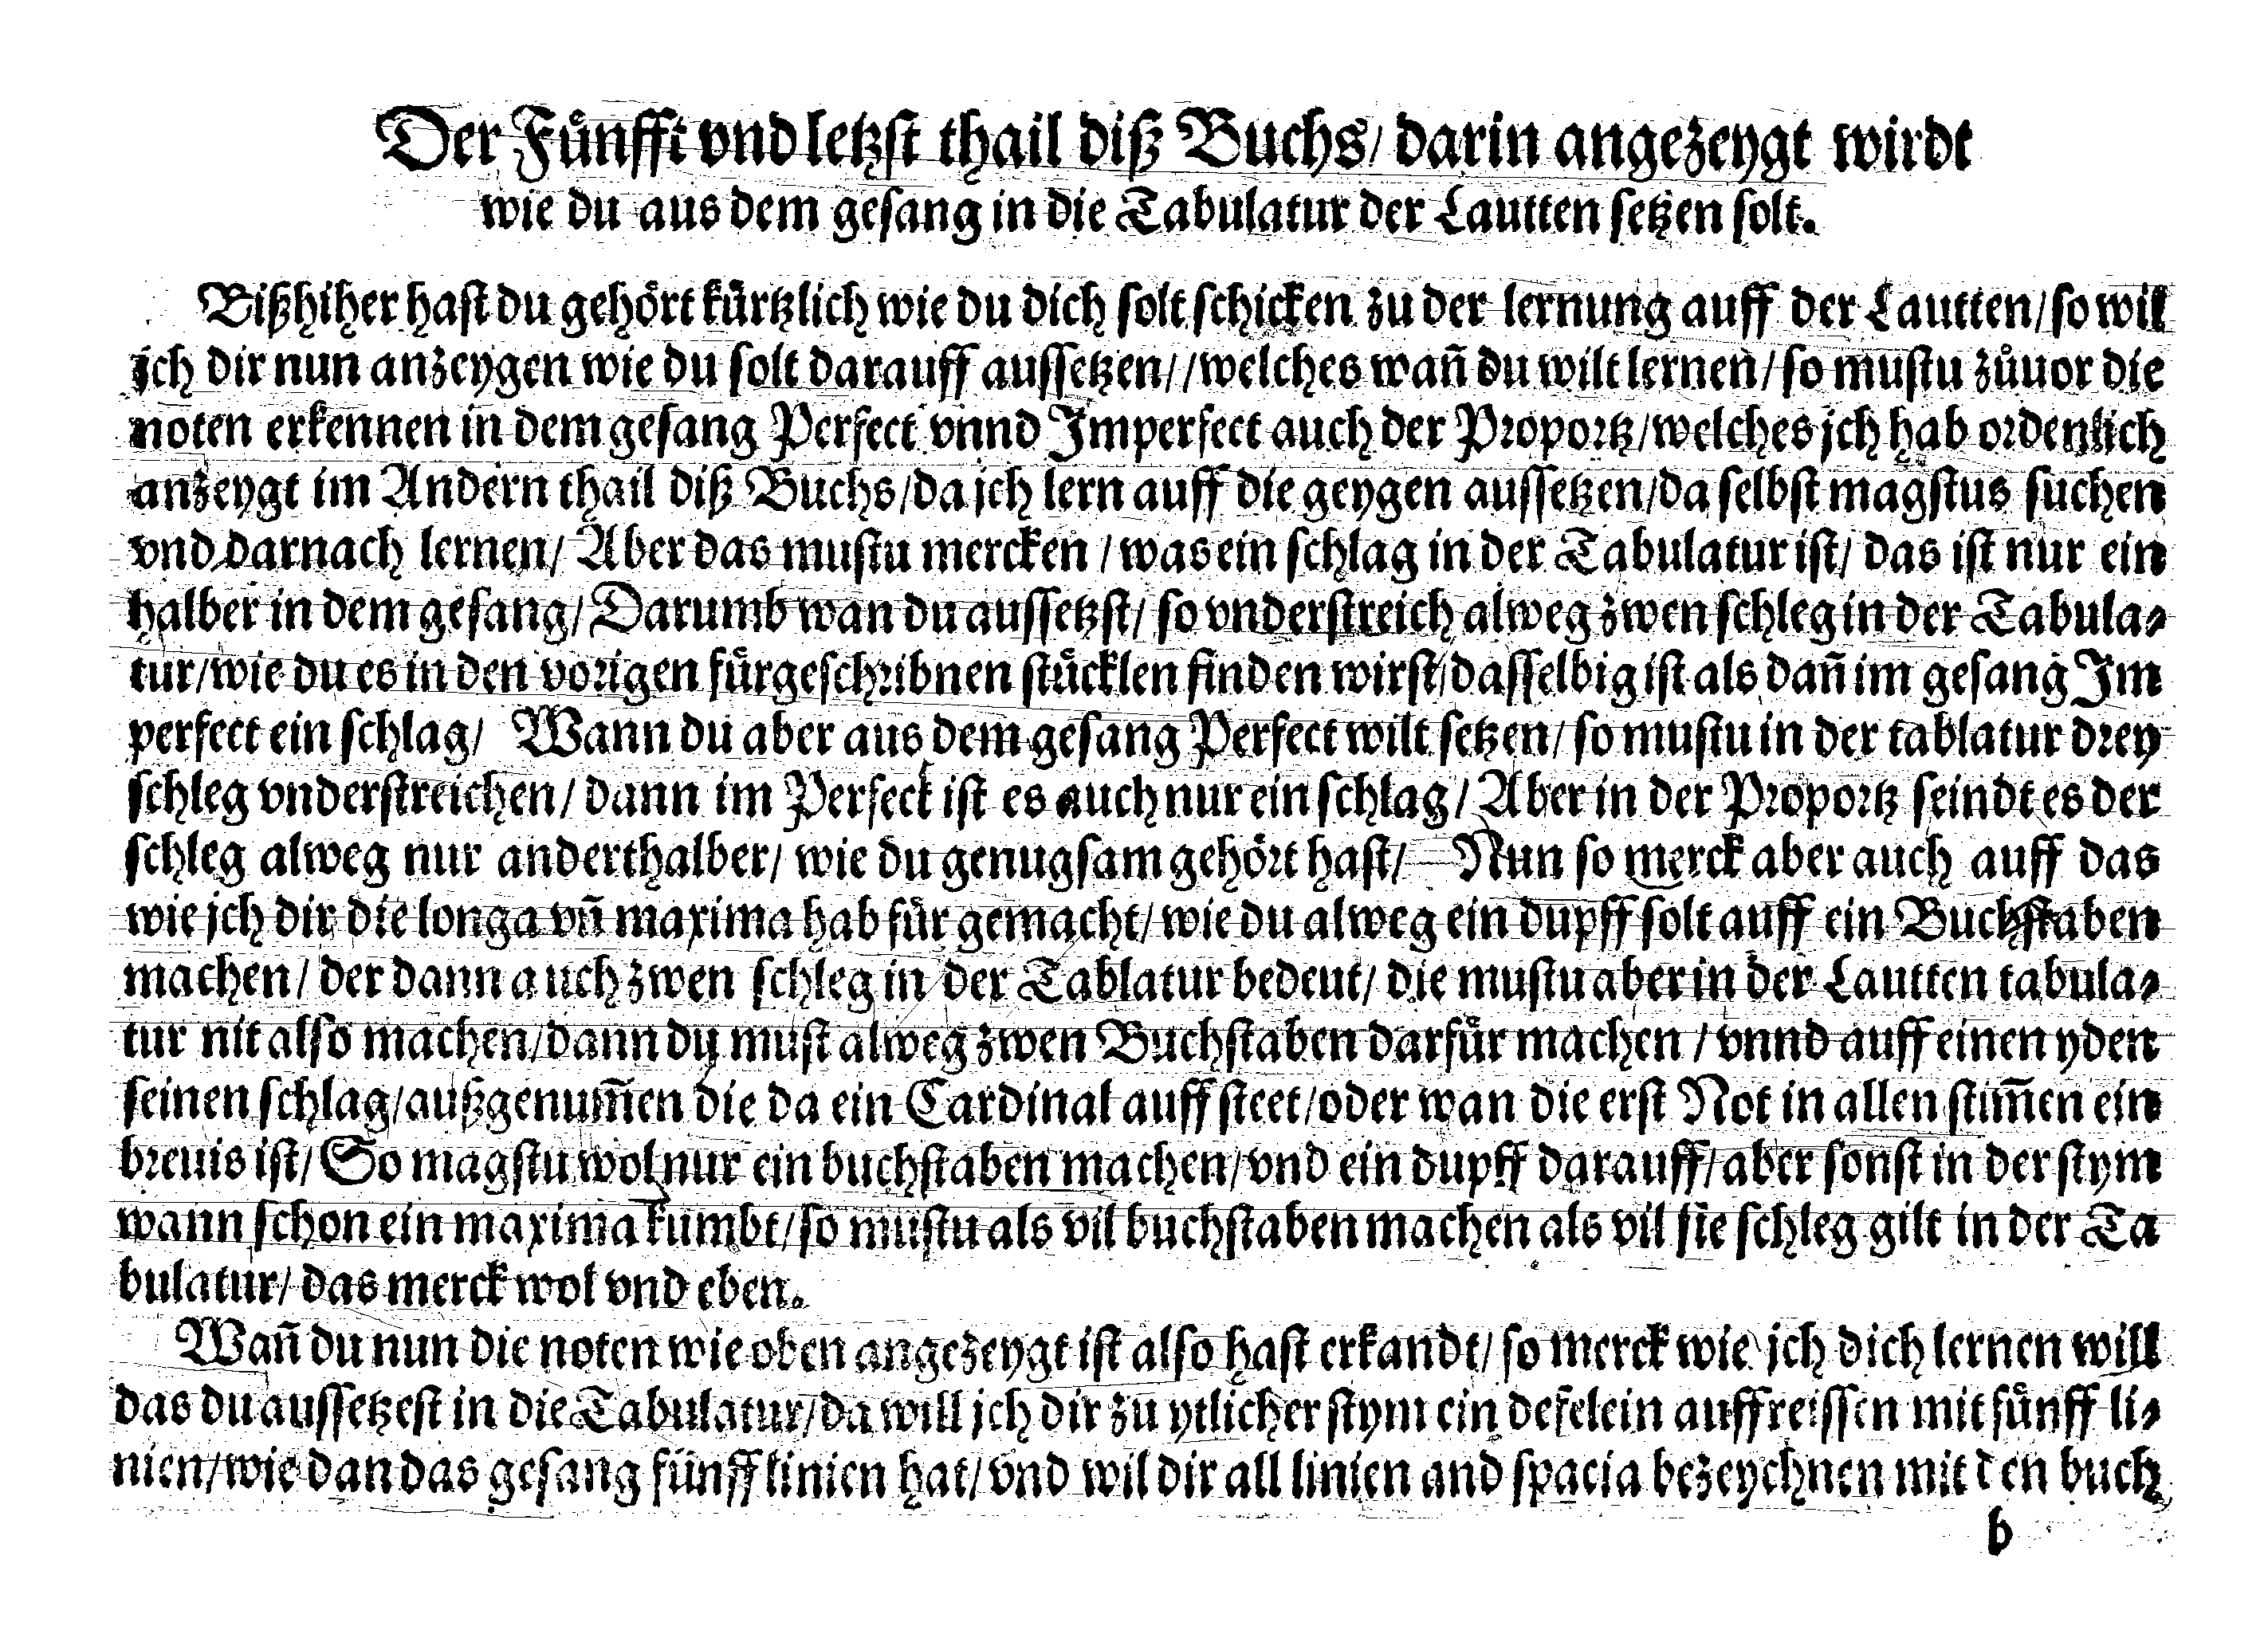 Der Fuͤnfft vnd letzst thail diß Buchs/ darin angezeygt wirdt
wie du aus dem gesang in die Tabulatur der Lautten setzen solt.
Bißhiher hast du gehoͤrt kuͤrtzlich wie du dich solt schicken zu der lernung auff der Lautten/ so wil
ich dir nun anzeygen wie du solt darauff aussetzen//welches wañ du wilt lernen/ so mustu zuͦuor die
noten erkennen in dem gesang Perfect vnnd Imperfect auch der Proportz/welches jch hab ordenlich
anzeygt im Andern thail diß Buchs/da jch lern auff die geygen aussetzen/da selbst magstus suchen
vnd darnach lernen/ Aber das mustu mercken / was ein schlag in der Tabulatur ist/ das ist nur ein
halber in dem gesang/ Darumb wan du aussetzst/ so vnderstreich alweg zwen schleg in der Tabula⸗
tur/wie du es in den vorigen fuͤrgeschribnen stuͤcklen finden wirst/dasselbig ist als dañ im gesang Im
perfect ein schlag/ Wann du aber aus dem gesang Perfect wilt setzen/ so mustu in der tablatur drey
schleg vnderstreichen/ dann im Perfect ist es auch nur ein schlag/ Aber in der Proportz seindt es der
schleg alweg nur anderthalber/ wie du genugsam gehoͤrt hast/ Nun so merck aber auch auff das
wie jch dir die longa vñ maxima hab fuͤr gemacht/ wie du alweg ein dupff solt auff ein Buchstaben
machen/ der dann auch zwen schleg in der Tablatur bedeut/ die mustu aber in der Lautten tabula⸗
tur nit also machen/dann du must alweg zwen Buchstaben darfuͤr machen / vnnd auff einen yden
seinen schlag/außgenum̃en die da ein Cardinal auff steet/oder wan die erst Not in allen stim̃en ein
breuis ist/ So magstu wol nur ein buchstaben machen/ vnd ein dupff darauff/ aber sonst in der stym
wann schon ein maxima kumbt/ so mustu als vil buchstaben machen als vil sie schleg gilt in der Ta
bulatur/ das merck wol vnd eben.
Wañ du nun die noten wie oben angezeygt ist also hast erkandt/ so merck wie jch dich lernen will
das du aussetzest in die Tabulatur/da will jch dir zu ytlicher stym ein defelein auffreissen mit fuͤnff li⸗
nien/wie dan das gesang fuͤnff linien hat/ vnd wil dir all linien and spacia bezeychnen mit den buch
b